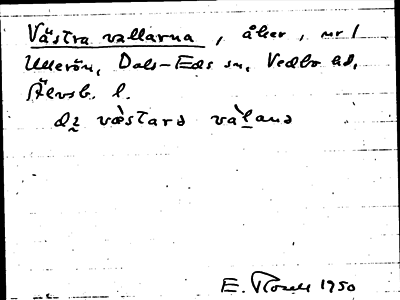 Västra vallarna, åker, nr 1
Ulerön, Dals-Eds sn, Vedbo hd,
Älvsb. l.
dɩ væ̀starə vàlanə
E. 1950